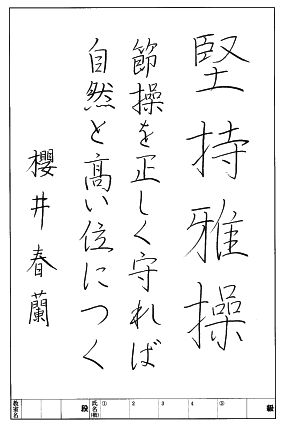 堅持雅操
節操を正しく守れば
自然と高い位につく
櫻井春蘭
級 ⑤ 4 3 2 ① 氏名(号) 段 教室名